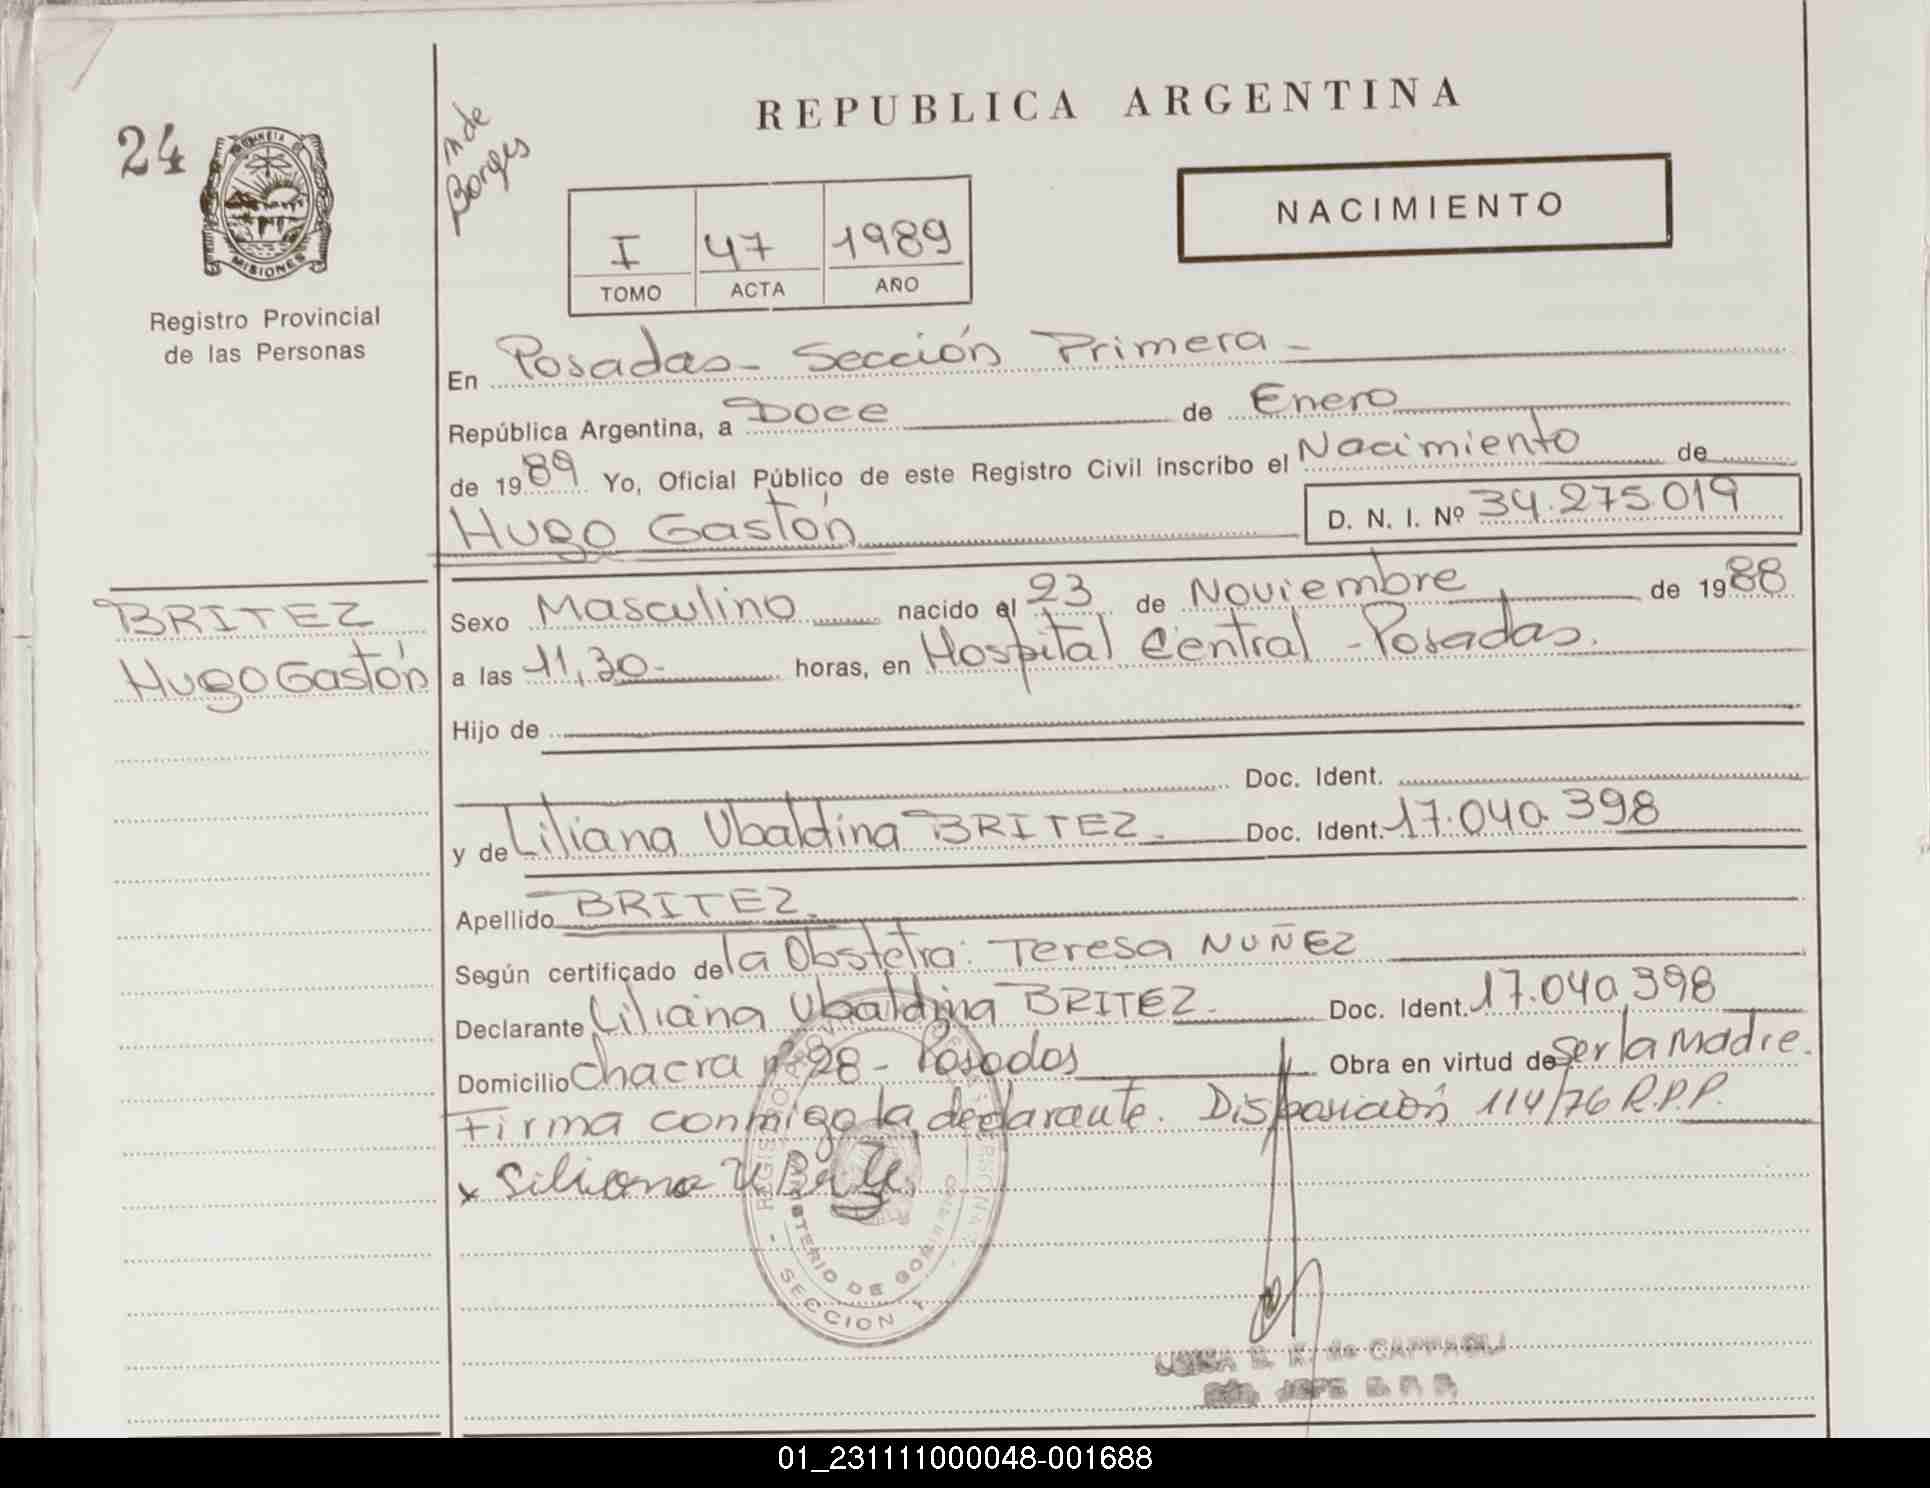 24
MISIONES
Registro Provincial
de las Personas
A de
Borges
REPUBLICA ARGENTINA
NACIMIENTO
I 47 1989
TOMO ACTA AÑO
En Posadas - Sección Primera -
República Argentina, a Doce de Enero
de 1989 Yo, Oficial Público de este Registro Civil inscribo el Nacimiento de
Hugo Gastón D. N. I. Nº 34.275.019
BRITEZ
Hugo Gastón
Sexo Masculino nacido el 23 de Noviembre de 1988
a las 11,30- horas, en Hospital Central - Posadas.
Hijo de
Doc. Ident.
y de Liliana Ubaldina BRITEZ. Doc. Ident. 17.040.398
Apellido BRITEZ.
Según certificado de la Obstetra: Teresa NUÑEZ
Declarante Liliana Ubaldina BRITEZ. Doc. Ident. 17.040.398
Domicilio Chacra nº 28 - Posadas Obra en virtud de ser la Madre.
Firma conmigo la declarante. Disposición 114/76 R.P.P.
x Liliana U
MINISTERIO DE GOBIERNO
SECCION 1
de CAPPAGLI
JEFE
01_231111000048-001688